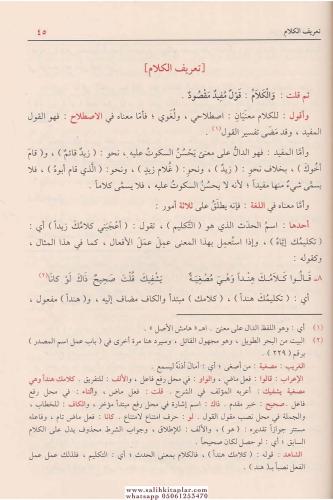 تعريف الكلام ٤٥
[تعريف الكلام]
ثم قلت : وَالْكَلَامُ : قَوْلٌ مُفِيدٌ مَقْصُودٌ .
وأقول : للكلام معنَيَان : اصطلاحي ، ولُغَوي ؛ فأمَّا معناه في الاصطلاح : فهو القول
المفيد ، وقد مَضَى تفسير القول(١) .
وأمَّا المفيد : فهو الدالُّ على معنىً يَحْسُنُ السكوتُ عليه ، نحو : ( زيدٌ قائمٌ ) ، و( قامَ
أخوكَ ) ، بخلاف نحو : ( زيدٌ ) ، ونحو : ( غُلامُ زيدٍ ) ، ونحو : ( الَّذي قامَ أبوهُ ) ، فلا
يسمَّى شيءٌ منها مفيداً ؛ لأنه لا يحسُنُ السكوتُ عليه ، فلا يسمَّى كلاماً .
وأمَّا معناه في اللغة : فإنه يطلَقُ على ثلاثة أمور :
أحدها : اسمُ الحدَث الذي هو ( التكليم ) ، تقول : ( أَعْجَبَني كلامُكَ زيداً ) أي :
( تكليمُكَ إيَّاهُ ) ، وإذا استُعمِل بهذا المعنى عمِلَ عمَلَ الأفعال ، كما في هذا المثال ،
وكقوله :
٨ـ قَـالُـوا كَـلَامُـكَ هِنْـداً وَهْـيَ مُصْغِيَـةٌ يَشْفِيـكَ قُلْـتُ صَحِيـحٌ ذَاكَ لَـوْ كَانَا(٢)
أي : ( تكليمُكَ هنداً ) ، ( كلامُك ) مبتدأ والكاف مضاف إليه ، و( هنداً ) مفعول ،
(١) أي : هو اللفظ الدال على معنى . اهـ« هامش الأصل » .
(٢) البيت من البحر الطويل ، وهو مجهول القائل ، وسيرد هنا مرة أخرى في ( باب عمل اسم المصدر )
برقم ( ٢٢٩ ) .
الغريب : مصغية : من أصغى ؛ أي : أمالَ أذنَهُ ليسمع .
الإعراب : قالوا : فعل ماض ، والواو : في محل رفع فاعل ، والألف : للتفريق . كلامك هنداً وهي
مصغية يشفيك : أعربه المؤلف في الشرح . قلت : فعل ماض ، والتاء : في محل رفع
فاعل . صحيح : خبر مقدم . ذاك : اسم إشارة في محل رفع مبتدأ مؤخر ، والكاف : للخطاب ،
والجملة في محل نصب مقول القول . لو : حرف امتناع لامتناع . كانا : فعل ماض تام ، وفاعله
مستتر جوازاً تقديره : ( هو ) ، والألف : للإطلاق ، وجواب الشرط محذوف يدل على الكلام
السابق ؛ أي : لو حصل لكان صحيحاً .
الشاهد : قوله : ( كلامك هنداً ) ، فالكلام بمعنى الحدث ؛ أي : التكليم ، فلذلك عمل عمل
الفعل نصباً بـ( هند ) .
www.salihkitaplar.com
whatsapp 05061253470